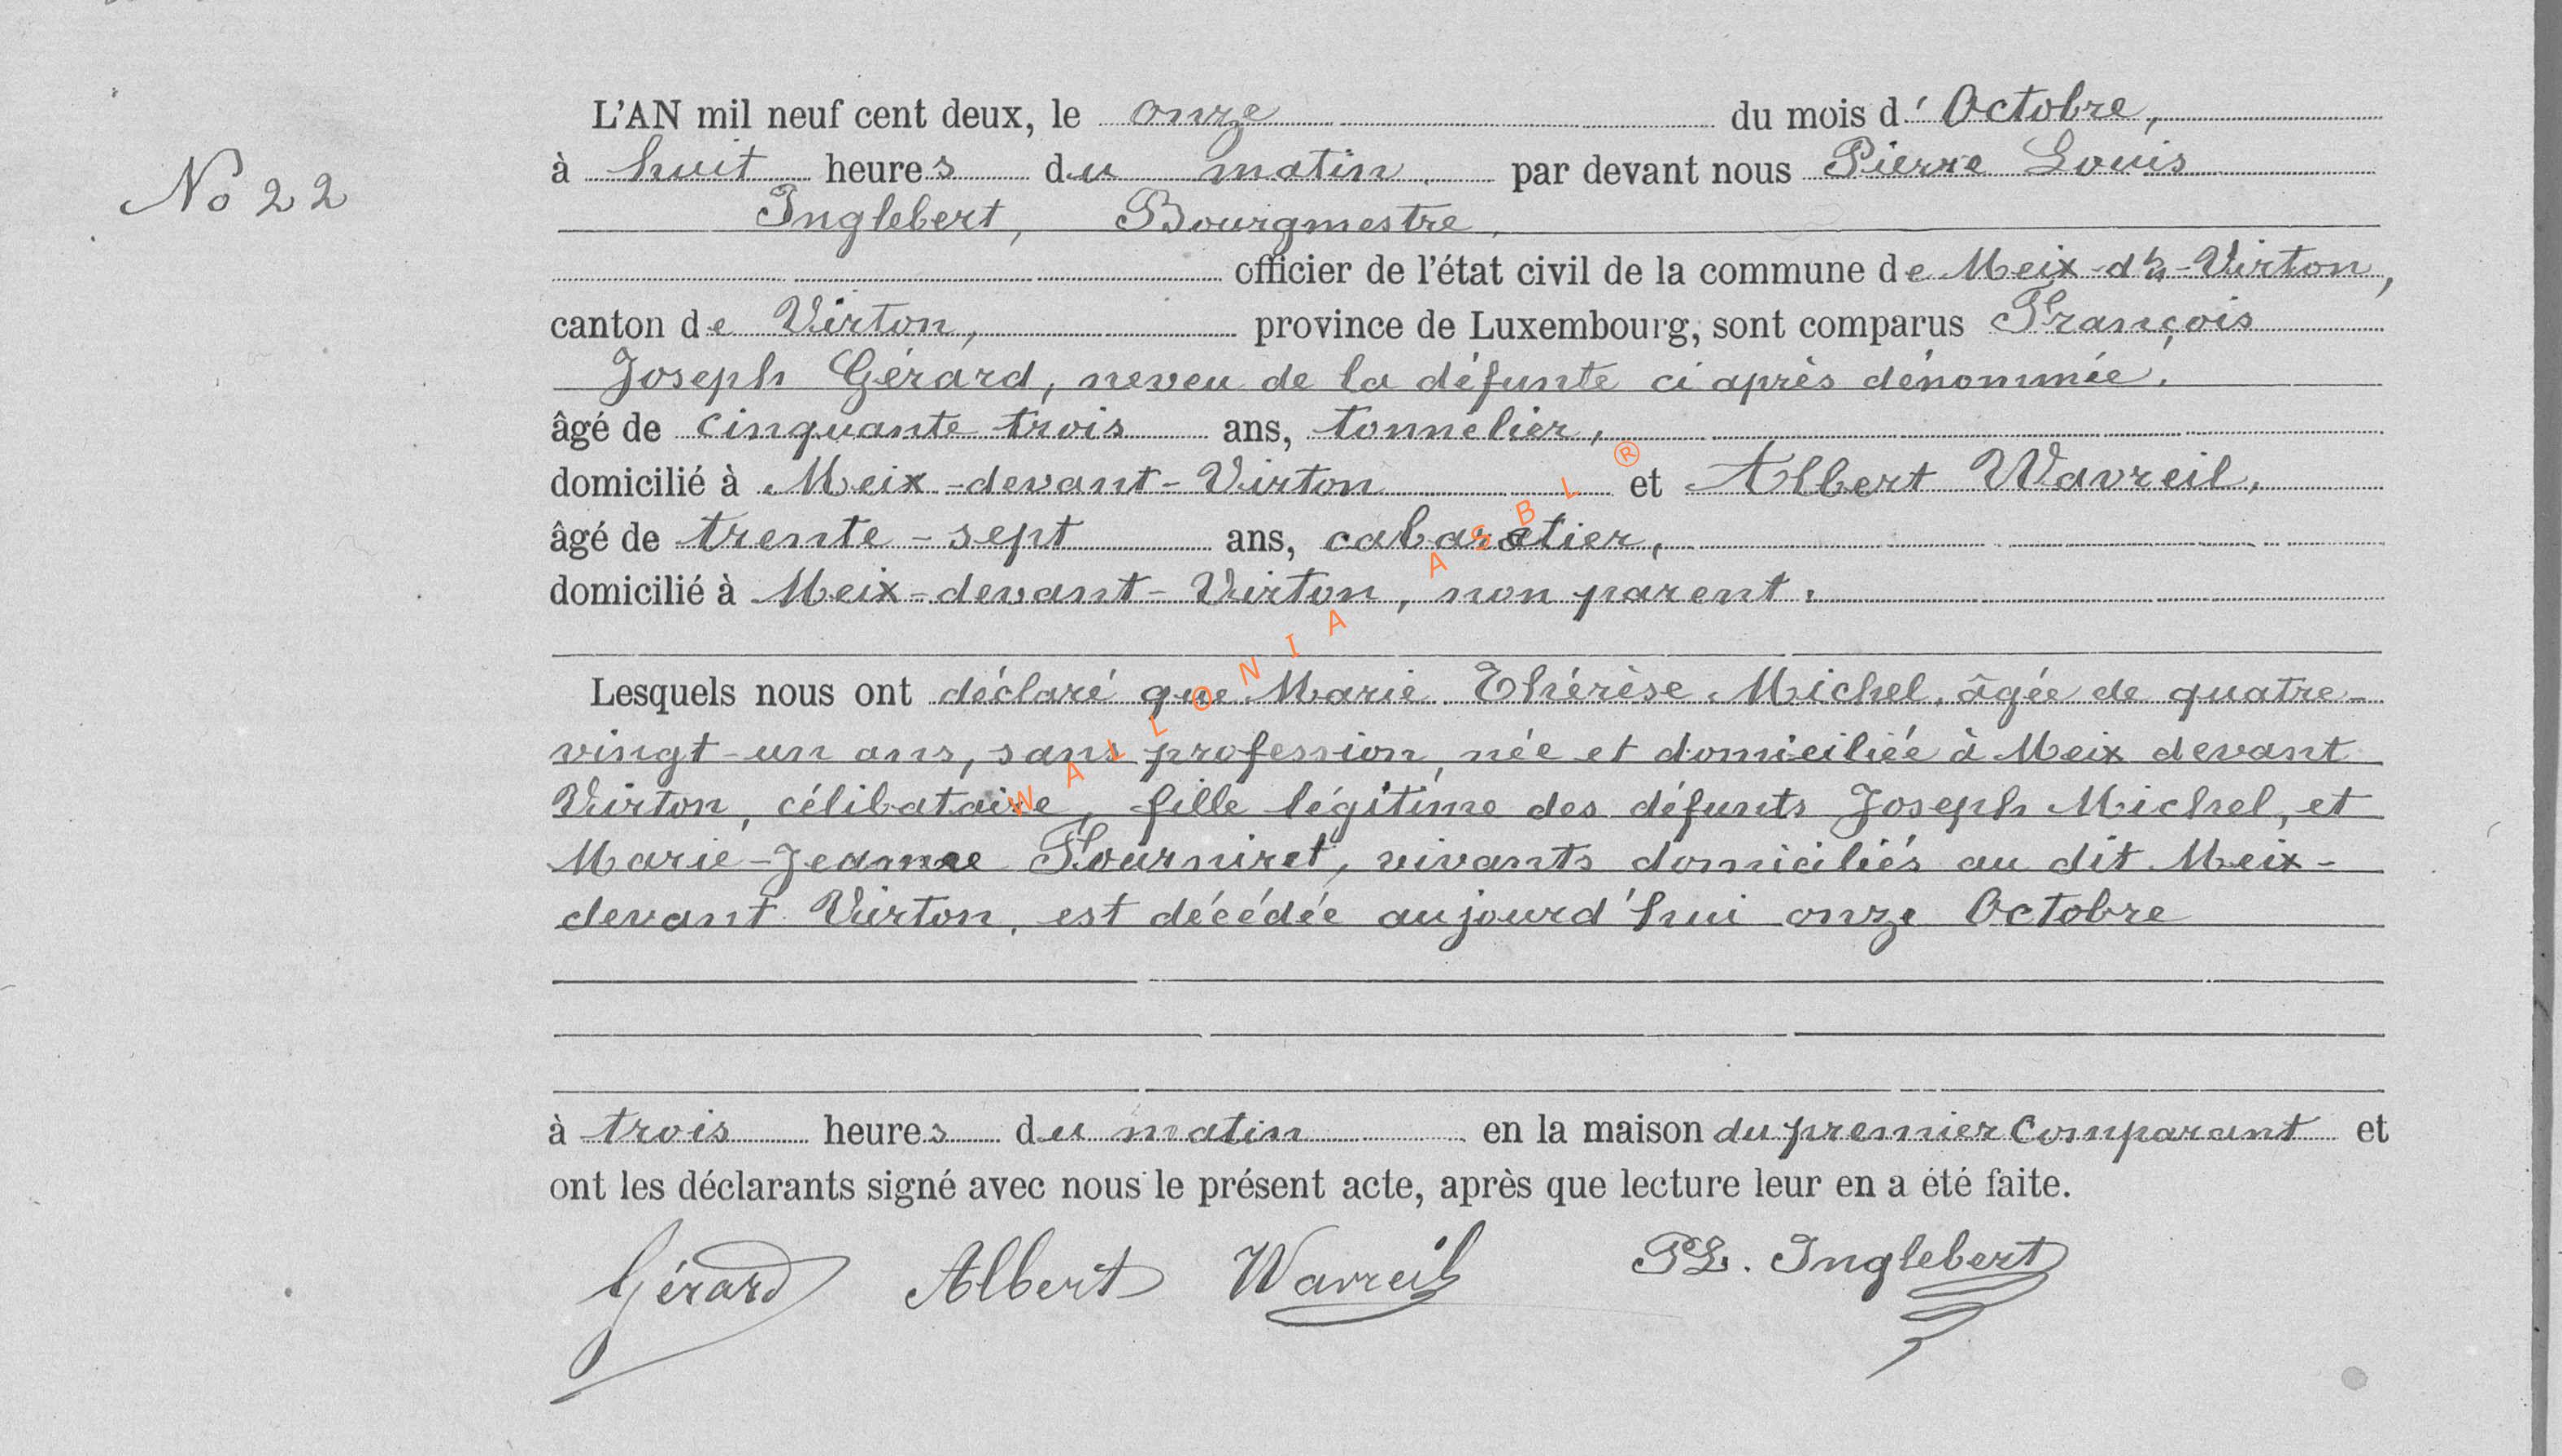 No 22
L'AN mil neuf cent deux, le onze du mois d'Octobre,
à huit heures du matin par devant nous Pierre Louis
Inglebert, Bourgmestre,
officier de l'état civil de la commune de Meix-dt-Virton,
canton de Virton, province de Luxembourg, sont comparus François
Joseph Gérard, neveu de la défunte ci après dénommée,
âgé de cinquante trois ans, tonnelier,
domicilié à Meix-devant-Virton et Albert Wavreil,
âgé de trente-sept ans, cabaretier,
domicilié à Meix-devant-Virton, non parent.
Lesquels nous ont déclaré que Marie Thérèse Michel, âgée de quatre-
vingt-un ans, sans profession, née et domiciliée à Meix devant
Virton, célibataire, fille légitime des défunts Joseph Michel, et
Marie-Jeanne Fourniret, vivants domiciliés au dit Meix-
devant Virton, est décédée aujourd'hui onze Octobre
à trois heures du matin en la maison du premier comparant et
ont les déclarants signé avec nous le présent acte, après que lecture leur en a été faite.
Gérard Albert Wavreil PL. Inglebert
WALLONIA ASBL ®